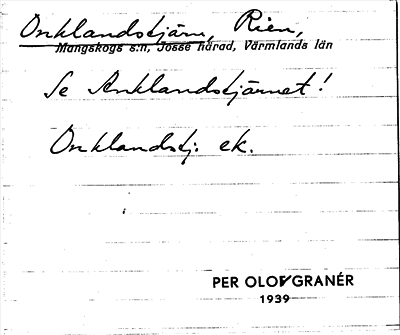 Onklandstjärn, Rien,
Mangskogs s:n, Jösse härad, Värmlands län
Se Anklandstjärnet!
Onklandstj. ek.
PER OLOF GRANÉR
1939